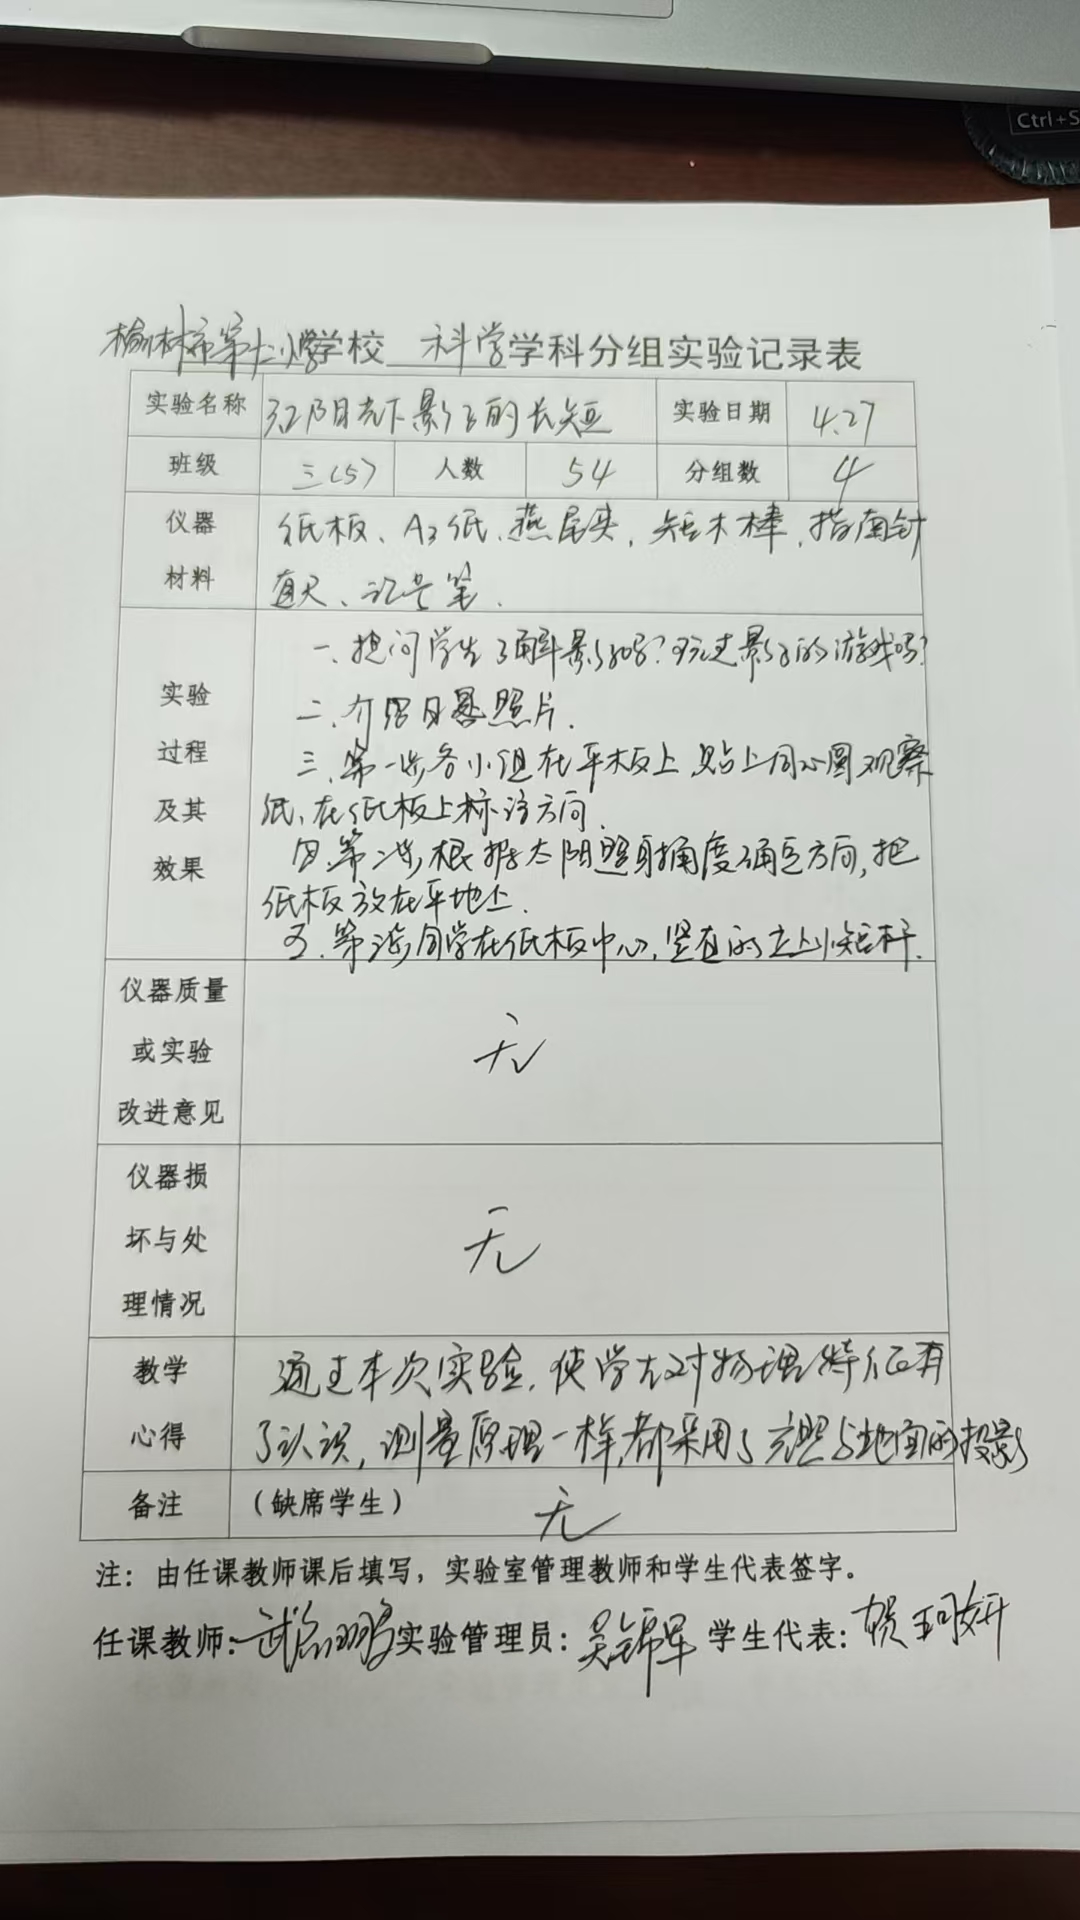 Ctrl+S
榆林市第十二小学学校 科学学科分组实验记录表
实验名称 3.2阳光下影子的长短 实验日期 4.27
班级 三(5) 人数 54 分组数 4
仪器 纸板、A3纸、燕尾夹、短木棒、指南针
材料 直尺、记号笔.
一、提问学生了解影子吗?玩过影子的游戏吗?
实验
二、介绍日晷照片.
过程
三、第一步各小组在平板上贴上同心圆观察
及其 纸、在纸板上标注方向.
四、第二步,根据太阳照射角度确定方向,把
效果
纸板放在平地上.
五、第三步同学在纸板中心,竖直的立上小短杆.
仪器质量
或实验 无
改进意见
仪器损
坏与处 无
理情况
教学 通过本次实验,使学生对物理特征有
心得 了认识,测量原理一样,都采用了光照与地面的投影
备注 (缺席学生) 无
注：由任课教师课后填写，实验室管理教师和学生代表签字。
任课教师: 实验管理员: 吴锦军 学生代表: 贺珂妍